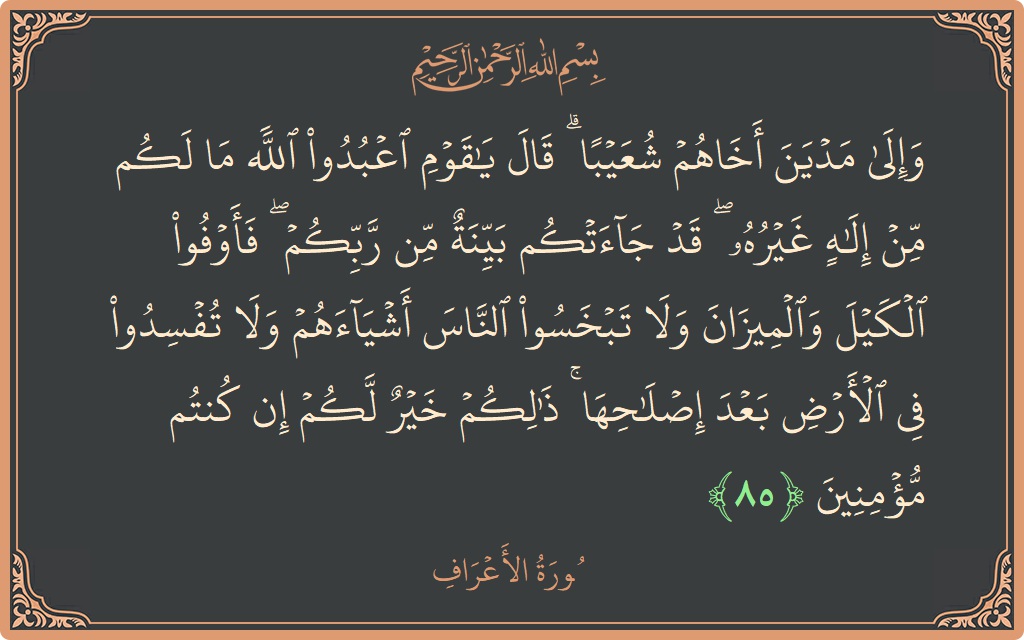 بِسْمِ اللهِ الرَّحْمٰنِ الرَّحِيْمِ
وَإِلَىٰ مَدۡيَنَ أَخَاهُمۡ شُعَيۡبٗاۚ قَالَ يَٰقَوۡمِ ٱعۡبُدُواْ ٱللَّهَ مَا لَكُم
مِّنۡ إِلَٰهٍ غَيۡرُهُۥۖ قَدۡ جَآءَتۡكُم بَيِّنَةٞ مِّن رَّبِّكُمۡۖ فَأَوۡفُواْ
ٱلۡكَيۡلَ وَٱلۡمِيزَانَ وَلَا تَبۡخَسُواْ ٱلنَّاسَ أَشۡيَآءَهُمۡ وَلَا تُفۡسِدُواْ
فِي ٱلۡأَرۡضِ بَعۡدَ إِصۡلَٰحِهَاۚ ذَٰلِكُمۡ خَيۡرٞ لَّكُمۡ إِن كُنتُم
مُّؤۡمِنِينَ ﴿٨٥﴾
سُورَةُ الأَعْرَافِ